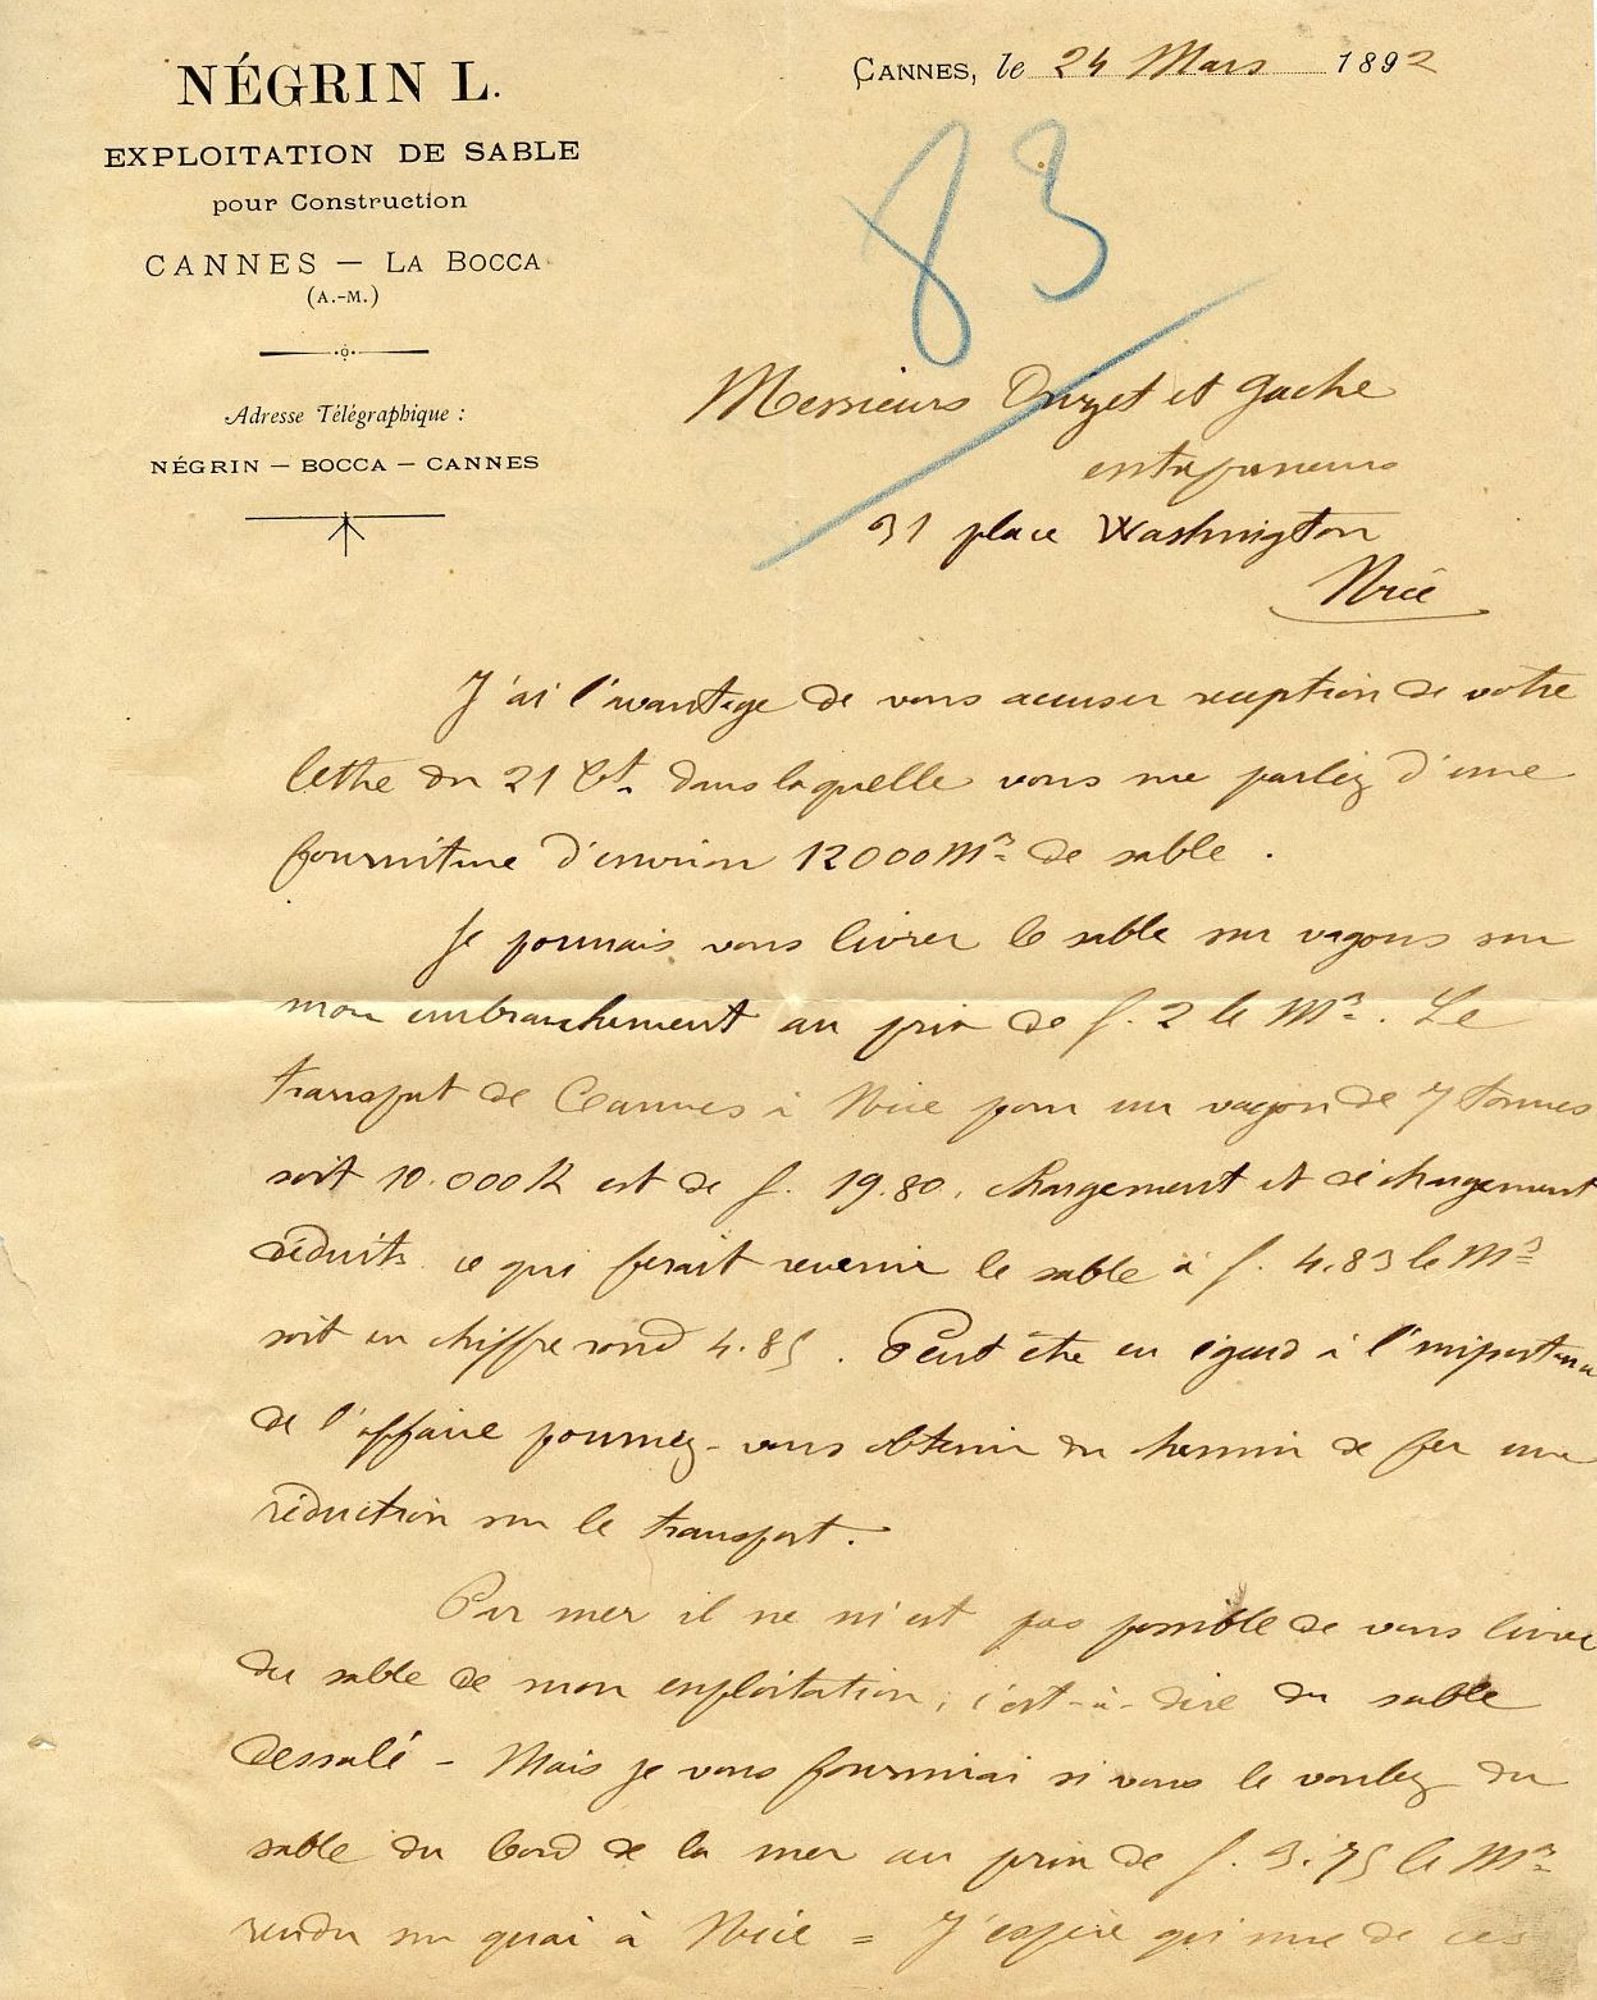 NÉGRIN L.
EXPLOITATION DE SABLE
pour Construction
CANNES — LA BOCCA
(A.-M.)
Adresse Télégraphique :
NÉGRIN — BOCCA — CANNES
CANNES, le 24 Mars 1892
83
Messieurs et Gache
entrepreneurs
31 place Washington
Nice
J'ai l'avantage de vous accuser reception de votre
lettre du 21 Ct. dans laquelle vous me parliez d'une
fourniture d'environ 12000 M³ de sable.
Je pourrais vous livrer le sable sur vagons sur
mon embranchement au prix de f. 2 le M³. Le
transport de Cannes à Nice pour un vagon de 7 tonnes
soit 10.000 K est de f. 19.80, chargement et déchargement
déduits ce qui ferait revenir le sable à f. 4.83 le M³
soit en chiffre rond 4.85. Peut être en égard à l'importance
de l'affaire pourriez-vous obtenir du chemin de fer une
réduction sur le transport.
Par mer il ne m'est pas possible de vous livrer
du sable de mon exploitation, c'est-à-dire du sable
dessalé - Mais je vous fournirai si vous le voulez du
sable du bord de la mer au prix de f. 3.75 le M³
rendu sur quai à Nice = J'espère qu'une de ces